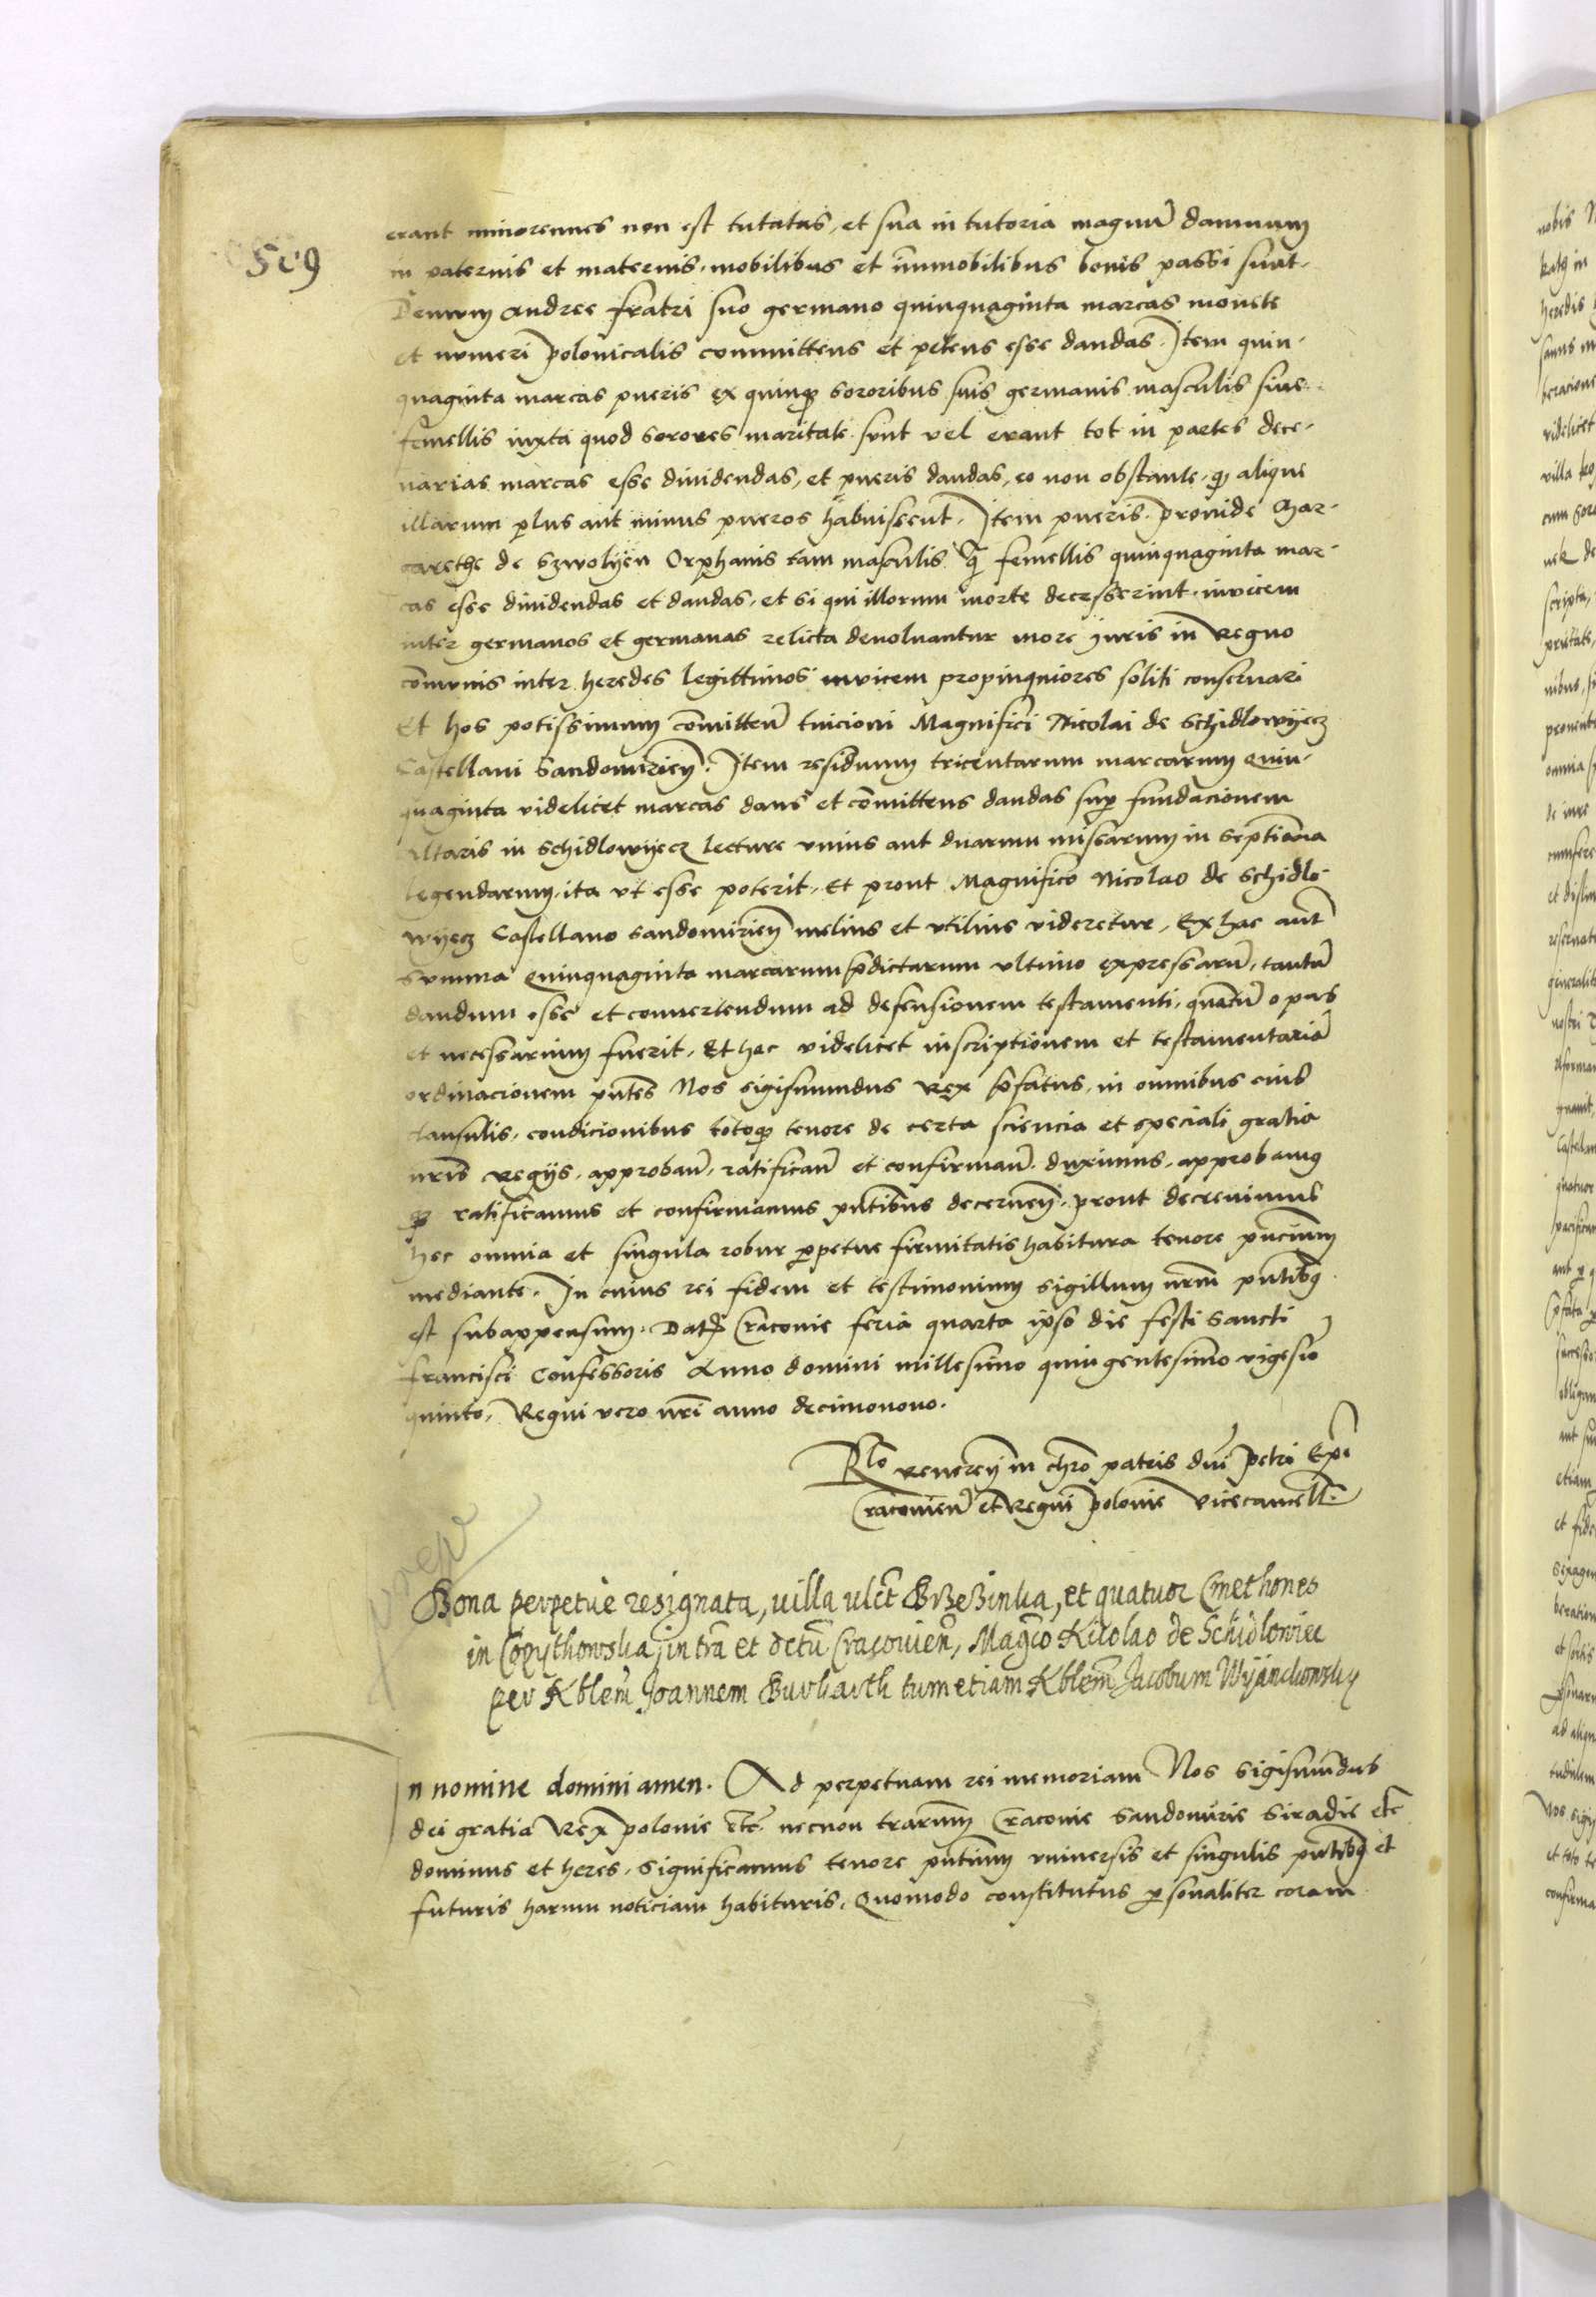 509
erant minorennes non est tutatus, et sua in tutoria magnu᷉ damnum
in paternis et maternis, mobilibus et immobilibus bonis passi sunt.
Demum Andree fratri suo germano quinquaginta marcas monete
et numeri polonicalis committens et petens esse dandas. Item quin-
quaginta marcas pueris ex quinqꝫ sororibus suis germanis masculis sive
femellis iuxta quod sorores maritate sunt vel erant tot in partes dece-
narias marcas esse dividendas, et pueris dandas, eo non obstante, qꝫ alique
illarum plus aut minus pueros habuissent. Item pueris provide Mar-
garethe de Szwolyen Orphanis tam masculis qꝫ femellis quinquaginta mar-
cas esse dividendas et dandas, et si qui illorum morte decesserint, invicem
inter germanos et germanas relicta devolvantur more iuris in Regno
co᷉munis inter heredes legittimos invicem propinquiores soliti conservari
Et hos potissimum co᷉mitten᷉ tuicioni Magnifici Nicolai de Schidlowyecz
Castellani Sandomirien᷉. Item residuum tricentarum marcarum quin-
quaginta videlicet marcas dans et co᷉mittens dandas sup᷉ fundacionem
altaris in Schidlowyecz lecture unius aut duarum missarum in septi᷉ana
legendarum, ita ut esse poterit, Et prout Magnifico Nicolao de Schidlo-
wyecz Castellano Sandomirien᷉ melius et utilius videretur, Ex hac aut᷉
summa quinquaginta marcarum p᷉dictarum ultimo expressaru᷉, tantu᷉
dandum esse et convertendum ad defensionem testamenti, quantu᷉ opus
et necessarium fuerit, Et hac videlicet inscriptionem et testamentaria᷉
ordinacionem pu᷉tes Nos Sigismundus Rex p᷉fatus, in omnibus eius
clausulis, condicionibus totoqꝫ tenore de certa sciencia et speciali gratia
nr᷉is regiis, approban᷉, ratifican᷉ et confirman᷉ duximus, approbamus
qꝫ ratificamus et confirmamus pn᷉tibus decernen᷉, prout decrevimus
hec omnia et singula robur p᷉petue firmitatis habitura tenore pn᷉cium
mediante. In cuius rei fidem et testimonium sigillum nr᷉m pn᷉tibꝫ
est subappensum. Dat᷉ Cracovie feria quarta ipso die festi Sancti
Francisci Confessoris Anno domini millesimo quingentesimo vigesi᷉o
quinto, Regni vero nr᷉i anno decimonono.
Rlo Reveren᷉ in chr᷉o patris dn᷉i Petri Ep᷉i
Cracovien᷉ et Regni Polonie Vicecancell᷉.
Bona perpetue resignata, villa vlct᷉ Brzezinka, et quatuor Cmethones
in Copythowska, in tra᷉ et dctu᷉ Cracovien᷉, Magco᷉ Nicolao de Schidlowiec
per Nblem᷉ Joannem Burkarth tum etiam Nblem᷉ Jacobum Wyanckowsky
In nomine domini amen. Ad perpetuam rei memoriam Nos Sigismundus
dei gratia Rex polonie etc᷉ necnon trarum᷉ Cracovie Sandomirie Siradie etc᷉
dominus et heres, Significamus tenore pn᷉tium universis et singulis pn᷉tibꝫ et
futuris harum noticiam habituris, Quomodo constitutus p᷉sonaliter coram